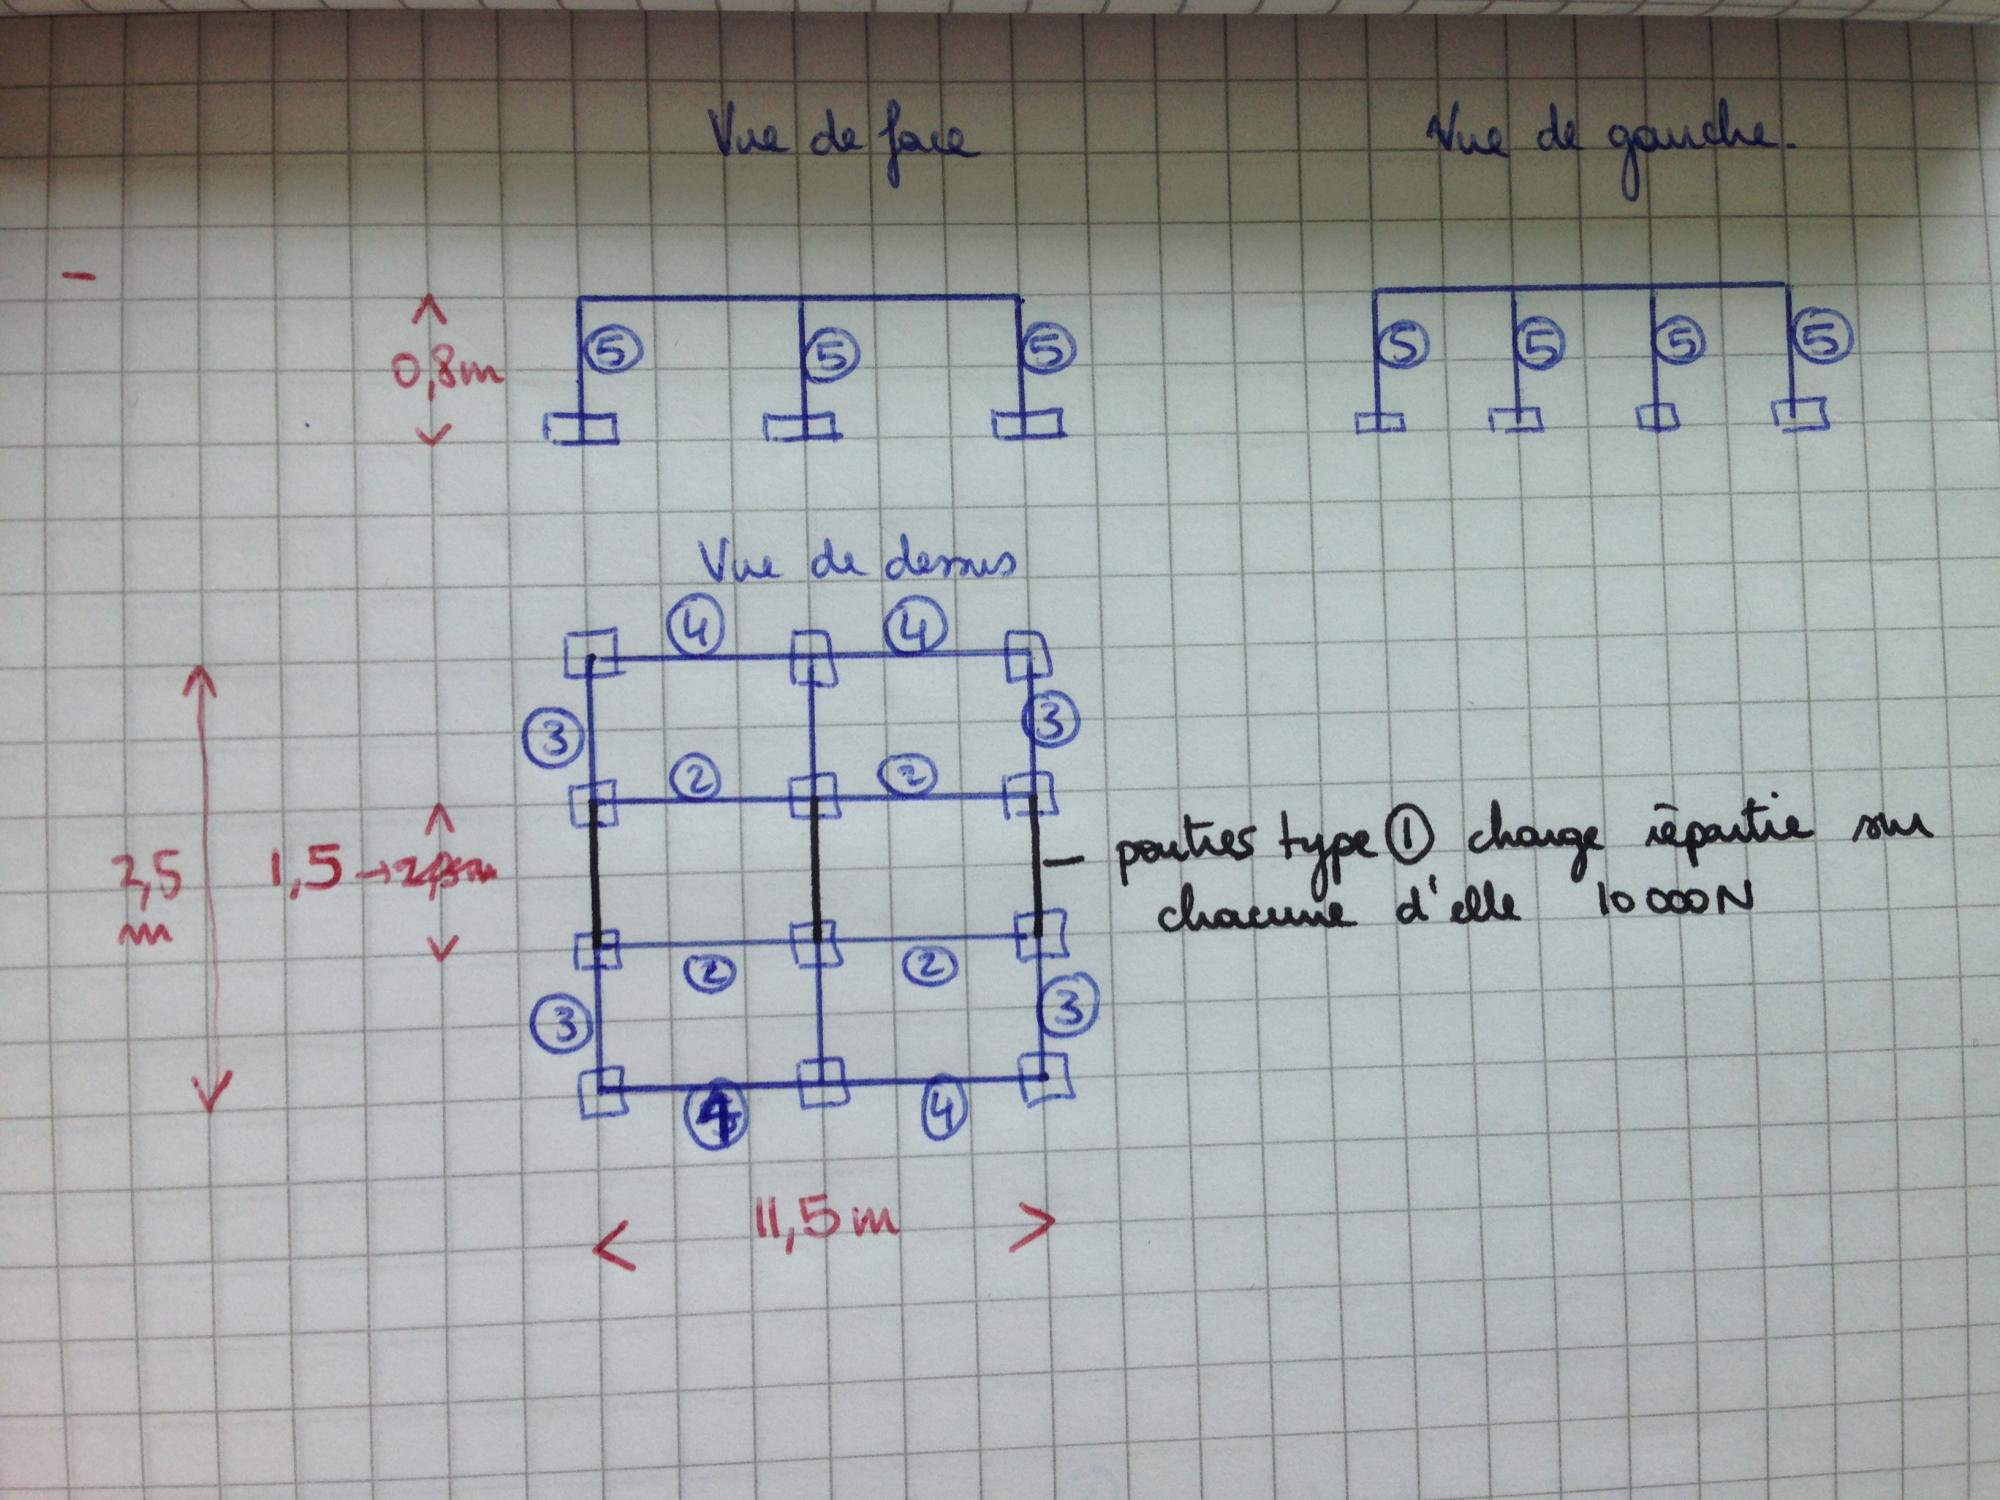 Vue de face
Vue de gauche.
0,8m
5 5 5
5 5 5 5
Vue de dessus
4 4
3 3
2 2
2,5 m
1,5 →
poutres type 1 charge répartie sur
chacune d'elle 10 000N
2 2
3 3
4 4
11,5 m